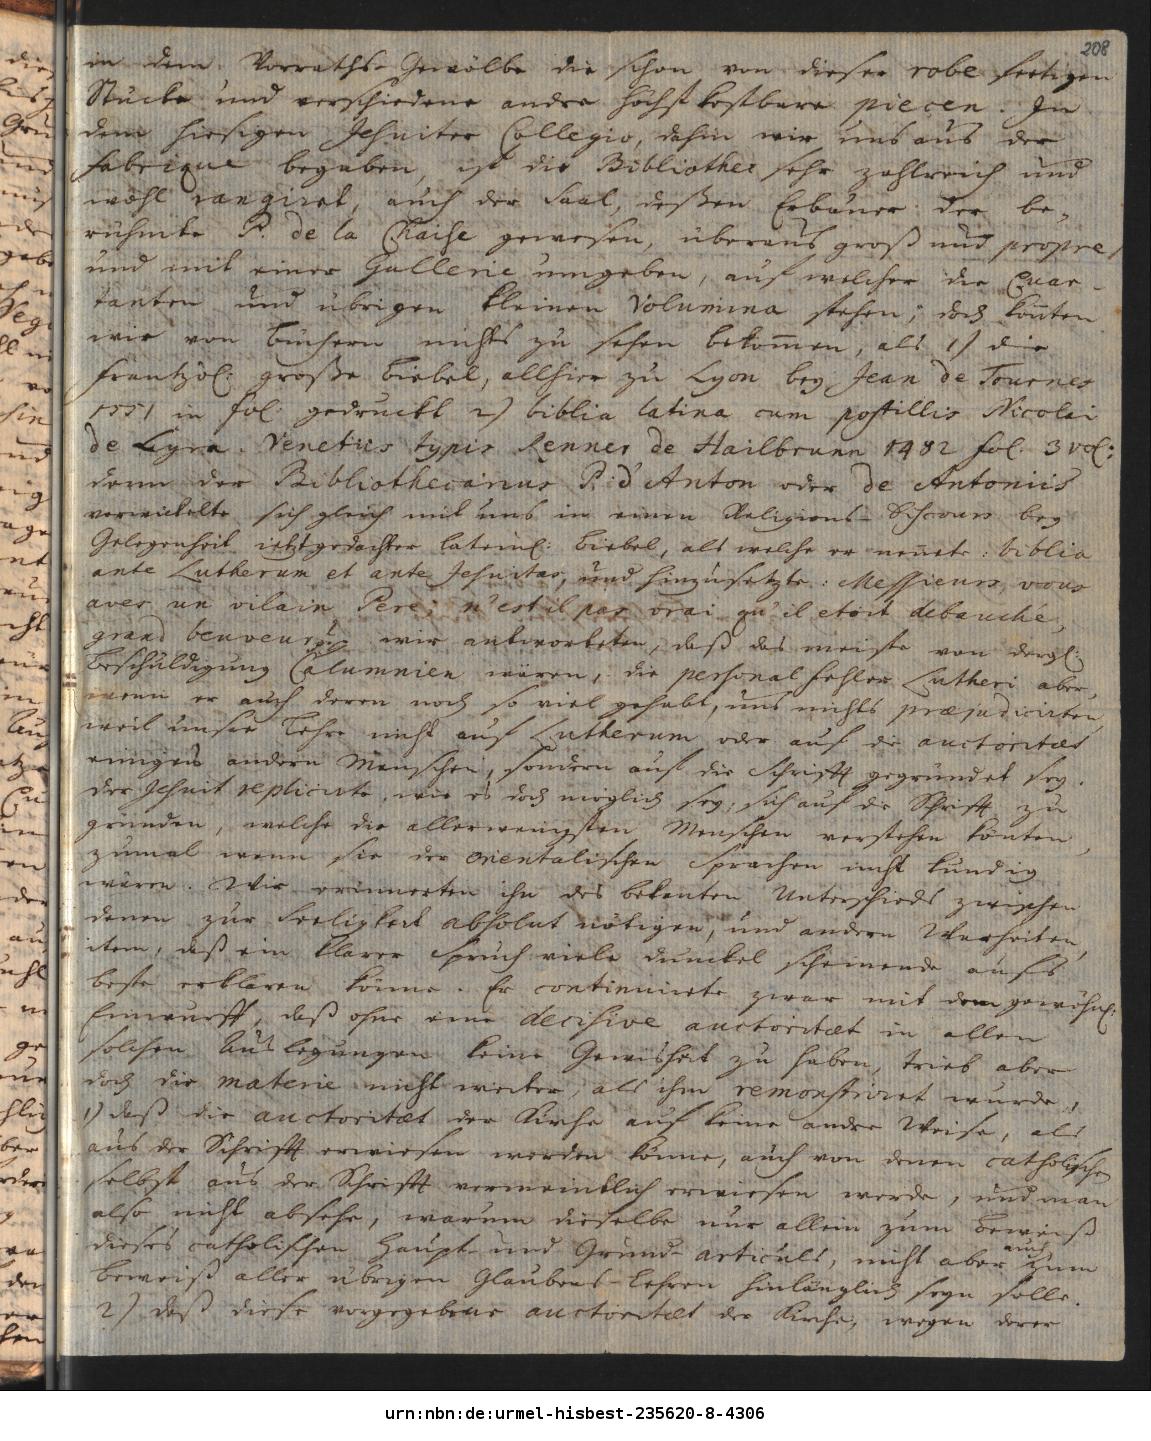 208
in dem Vorraths-Gewölbe die schon von dieser robe fertigen
Stücke und verschiedene andre höchst kostbare piecen. In
dem hiesigen Jesuiter Collegio, dahin wir uns aus der
fabrique begaben, ist die Bibliothec sehr zahlreich und
wohl rangiret, auch der Saal, deßen Erbauer der be-
rühmte P. de la Chaise gewesen, überaus groß und propre,
und mit einer Gallerie umgeben, auf welcher die Quar-
tanten und übrigen kleinen Volumina stehen; doch konten
wir von Büchern nichts zu sehen bekom̅en, als 1) die
frantzös: große Biebel, allhier zu Lyon bey Jean de Tournes
1551 in fol: gedruckt 2) biblia latina cum postillis Nicolai
de Lyra. Venetiis typis Renner de Hailbrunn 1482 fol. 3 vol:
denn der Bibliothecarius P. d'Anton oder de Antoniis
verwickelte sich gleich mit uns in einen Religions-Discours bey
Gelegenheit ietztgedachter lateinl: Biebel, als welche er nen̅ete: biblia
ante Lutherum et ante Jesuitas, und hinzusetzte: Messieurs, vous
aves un vilain Pere; n'est il pas vrai qu'il etoit debauché,
grand beuveur? wir antworteten, daß das meiste von dergl:
Beschuldigung Calumnien wären, die personal fehler Lutheri aber,
wenn er auch deren noch so viel gehabt, uns nichts præjudicirten,
weil unsre Lehre nicht auf Lutherum oder auf die auctoritæt
einiges andern Menschen, sondern auf die Schrifft gegründet sey.
der Jesuit replicirte, wie es doch möglich sey, sich auf die Schrifft zu
gründen, welche die allerwenigsten Menschen verstehen könten,
zumal wenn sie der orientalischen Sprachen nicht kundig
wären. Wir erinnerten ihn des bekanten Unterschieds zwischen
denen zur Seeligkeit absolut nötigen, und andern Warheiten,
item, daß ein klarer Spruch viele dunckel scheinende aufs
beste erklären könne. Er continuirte zwar mit dem gewöhnl:
Einwurff, daß ohne eine decisive auctoritæt in allen
solchen Auslegungen keine Gewisheit zu haben, trieb aber
doch die materie nicht weiter, als ihm remonstriret wurde,
1) daß die auctoritæt der Kirche auf keine andre Weise, als
aus der Schrifft erwiesen werden könne, auch von denen catholischen
selbst aus der Schrifft vermeintlich erwiesen werde, und man
also nicht absehe, warum dieselbe nur allein zum Beweiß
dieses catholischen Haupt- und Grund-articuls, nicht aber auch zum
Beweiß aller übrigen Glaubens-Lehren hinlänglich seyn solle.
2) daß diese vorgegebene auctoritæt der Kirche, wegen derer
urn:nbn:de:urmel-hisbest-235620-8-4306